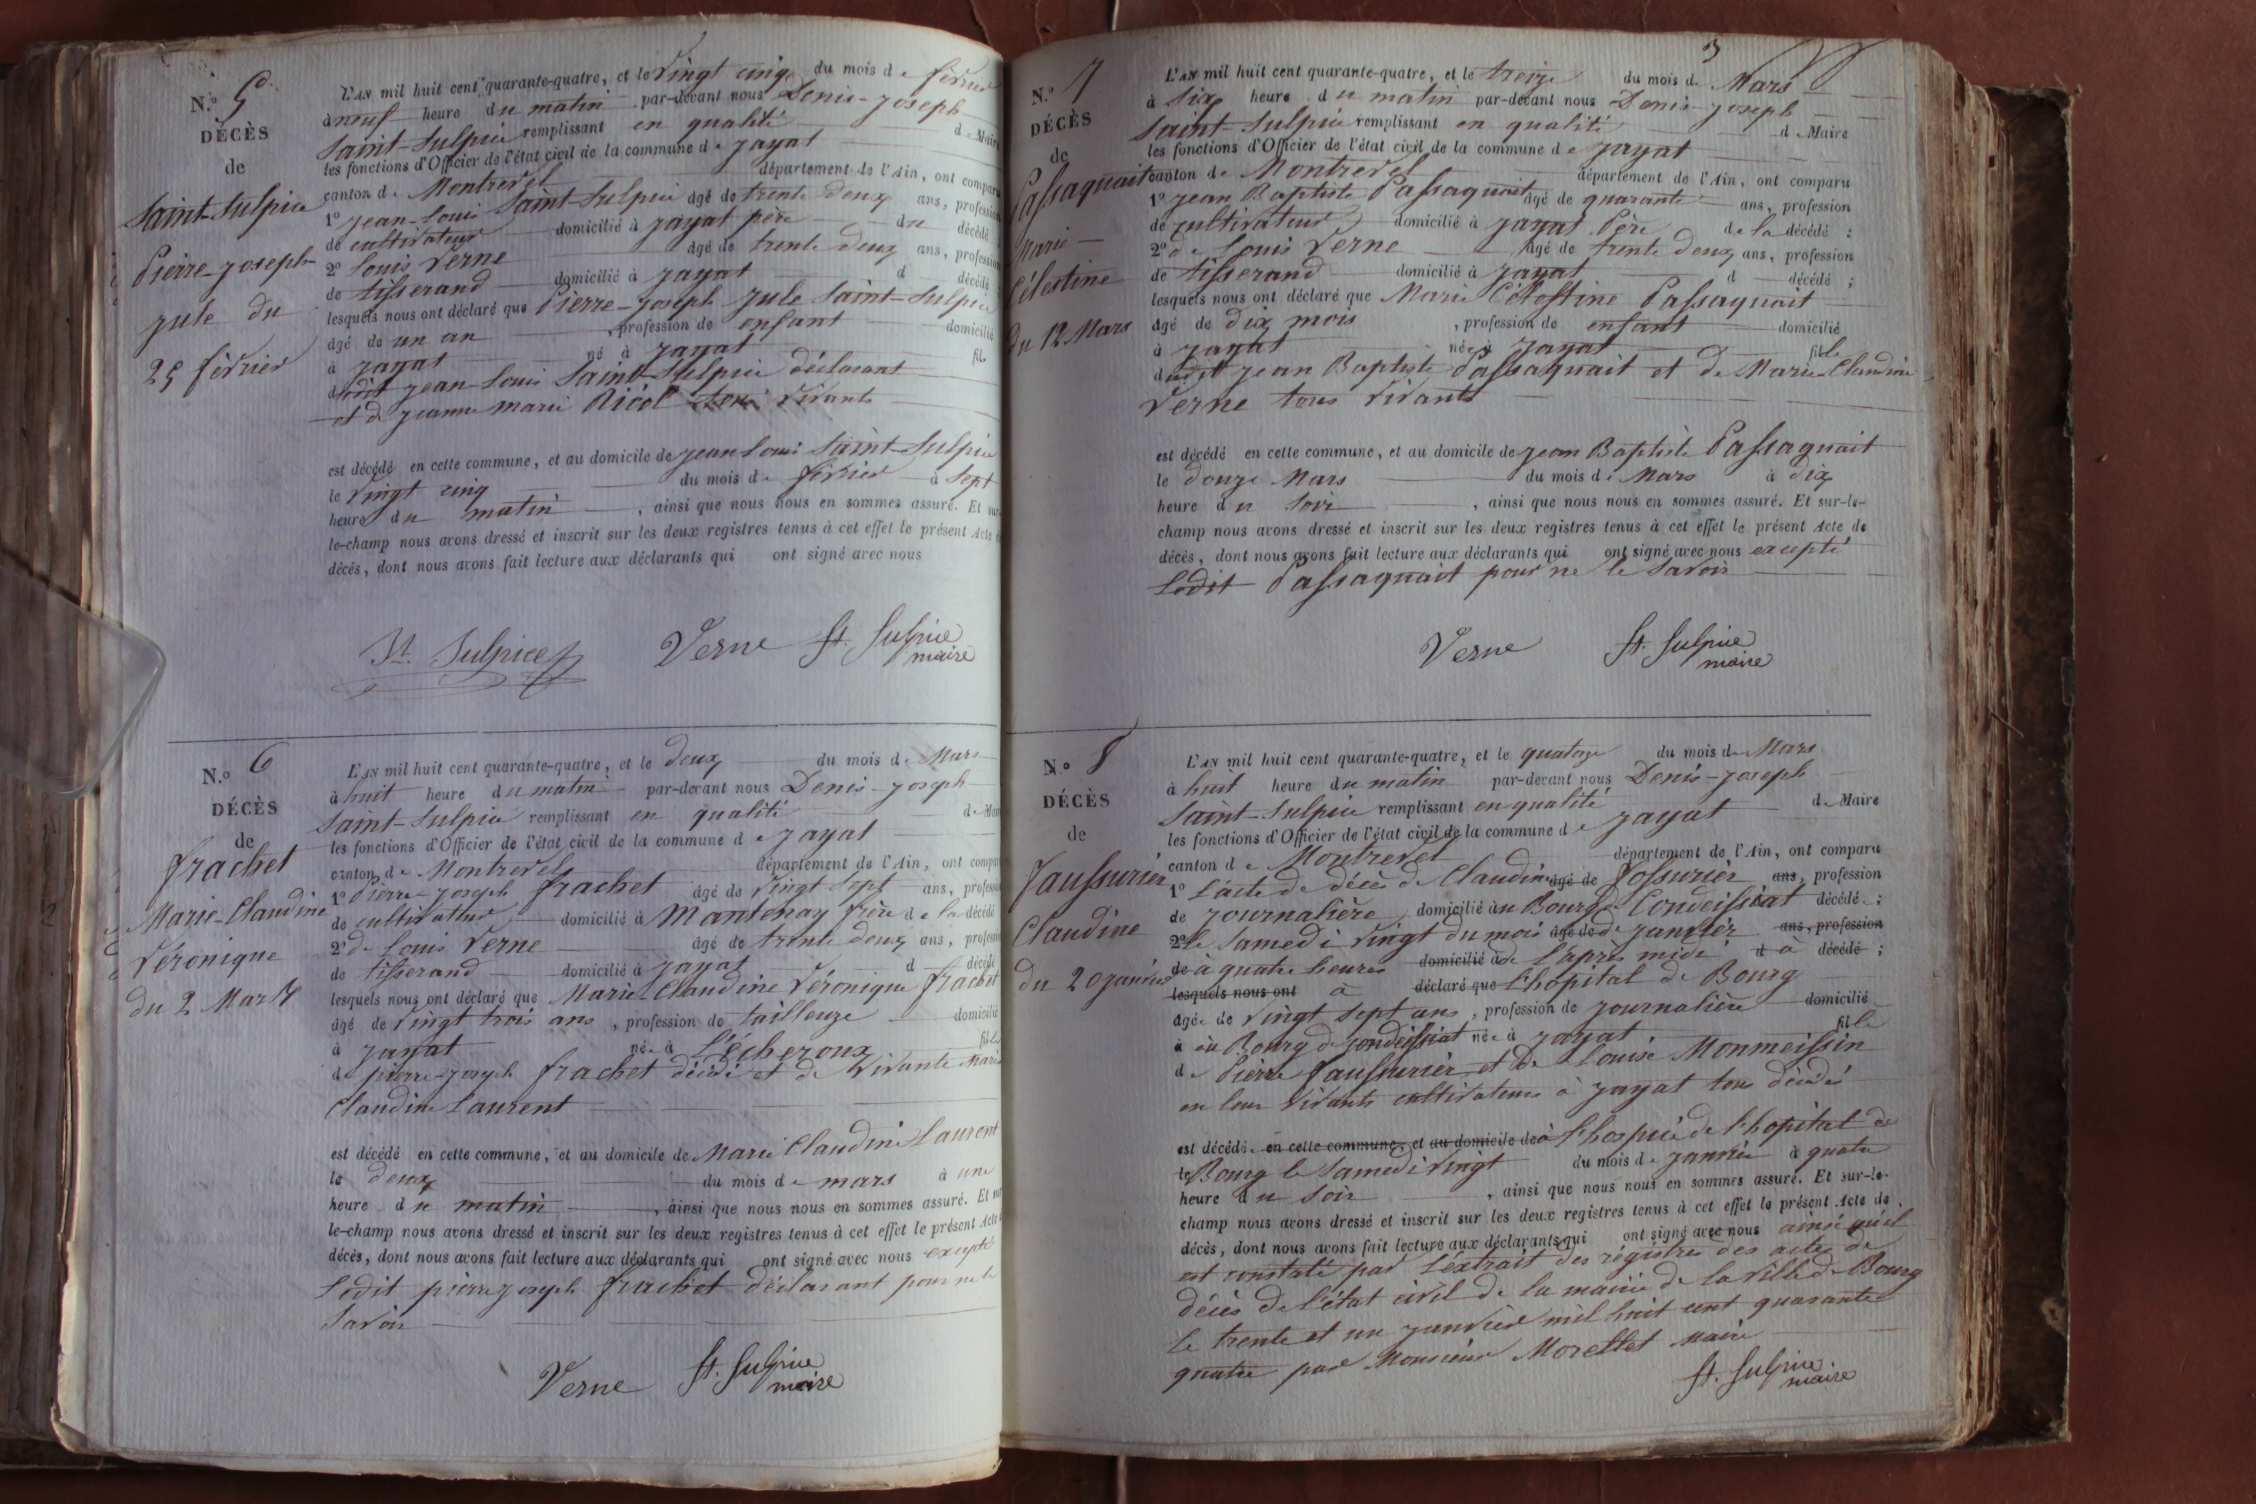 N.° 5
DÉCÈS
de
Saint-Sulpice
Pierre-Joseph
Jule du
25 février
L'AN mil huit cent quarante-quatre, et le vingt cinq du mois de février
à neuf heure du matin par-devant nous Denis-Joseph
Saint-Sulpice remplissant en qualité de Maire
les fonctions d'Officier de l'état civil de la commune de Jayat
canton de Montrevel département de l'Ain, ont comparu
1° Jean-Louis Saint-Sulpice âgé de trente deux ans, profession
de cultivateur domicilié à Jayat père du décédé
2° Louis Verne âgé de trente deux ans, profession
de tisserand domicilié à Jayat d décédé
lesquels nous ont déclaré que Pierre-Joseph Jule Saint-Sulpice
âgé de un an , profession de enfant domicilié
à Jayat né à Jayat fils
dudit Jean-Louis Saint-Sulpice déclarant
et de Jeanne Marie Ricol vivants
est décédé en cette commune, et au domicile de Jean Louis Saint-Sulpice
le vingt cinq du mois de février à sept
heure du matin , ainsi que nous nous en sommes assuré. Et sur-
le-champ nous avons dressé et inscrit sur les deux registres tenus à cet effet le présent Acte
décès, dont nous avons fait lecture aux déclarants qui ont signé avec nous
St. Sulpice Verne St. Sulpice
maire
N.° 6
DÉCÈS
de
Frachet
Marie-Claudine
Véronique
du 2 Mars
L'AN mil huit cent quarante-quatre, et le deux du mois de Mars
à huit heure du matin par-devant nous Denis-Joseph
Saint-Sulpice remplissant en qualité de Maire
les fonctions d'Officier de l'état civil de la commune de Jayat
canton de Montrevel département de l'Ain, ont comparu
1° Pierre-Joseph Frachet âgé de vingt sept ans, profession
de cultivateur domicilié à Mantenay frère de la décédé
2° de Louis Verne âgé de trente deux ans, profession
de tisserand domicilié à Jayat d décédé
lesquels nous ont déclaré que Marie-Claudine Véronique Frachet
âgé de vingt trois ans , profession de tailleuze domicilié
à Jayat née à L'écheroux fille
de pierre-Joseph Frachet décédé et de vivante Marie
Claudine Laurent
est décédé en cette commune, et au domicile de Marie Claudine Laurent
le deux du mois de mars à une
heure du matin , ainsi que nous nous en sommes assuré. Et sur
le-champ nous avons dressé et inscrit sur les deux registres tenus à cet effet le présent Acte
décès, dont nous avons fait lecture aux déclarants qui ont signé avec nous excepté
Ledit pierre Joseph Frachet déclarant pour ne le
Savoir
Verne St. Sulpice
maire
3
N.° 7
DÉCÈS
de
Passaquait
Marie
Célestine
du 12 Mars
L'AN mil huit cent quarante-quatre, et le treize du mois de Mars
à six heure du matin par-devant nous Denis-Joseph
Saint-Sulpice remplissant en qualité de Maire
les fonctions d'Officier de l'état civil de la commune de Jayat
canton de Montrevel département de l'Ain, ont comparu
1° Jean Baptiste Passaquait âgé de quarante ans, profession
de cultivateur domicilié à Jayat Père de la décédé :
2° de Louis Verne âgé de trente deux ans, profession
de tisserand domicilié à Jayat d décédé ;
lesquels nous ont déclaré que Marie Célestine Passaquait
âgé de dix mois , profession de enfant domicilié
à Jayat née à Jayat fille
dudit Jean Baptiste Passaquait et de Marie-Claudine
Verne tous vivants
est décédé en cette commune, et au domicile de Jean Baptiste Passaquait
le douze Mars du mois de Mars à dix
heure du soir , ainsi que nous nous en sommes assuré. Et sur-le-
champ nous avons dressé et inscrit sur les deux registres tenus à cet effet le présent Acte de
décès, dont nous avons fait lecture aux déclarants qui ont signé avec nous excepté
Ledit Passaquait pour ne le savoir
Verne St. Sulpice
maire
N.° 8
DÉCÈS
de
Faussurier
Claudine
du 20 janvier
L'AN mil huit cent quarante-quatre, et le quatorze du mois de Mars
à huit heure du matin par-devant nous Denis-Joseph
Saint-Sulpice remplissant en qualité de Maire
les fonctions d'Officier de l'état civil de la commune de Jayat
canton de Montrevel département de l'Ain, ont comparu
1° L'acte de décès de Claudine âgé de Fossurier ans, profession
de Journalière domicilié au Bourg de Condeissiat décédé ;
2° le Samedi vingt du mois âgé de de janvier ans, profession
de à quatre heures domicilié à de l'après midi d à décédé ;
lesquels nous ont à déclaré que l'hôpital de Bourg
âgée de vingt sept ans , profession de journalière domicilié
à au Bourg de Condeissiat née à Jayat fille
de Pierre Faussurier et de Louise Monmeissin
en leur vivants cultivateurs à Jayat tous décédés
est décédé en cette commune, et au domicile de à l'hospice de l'hopital de
le Bourg le Samedi vingt du mois de janvier à quatre
heure du soir , ainsi que nous nous en sommes assuré. Et sur-le-
champ nous avons dressé et inscrit sur les deux registres tenus à cet effet le présent Acte de
décès, dont nous avons fait lecture aux déclarants qui ont signé avec nous ainsi qu'il
est constaté par l'extrait des régistres des actes de
décès de l'état civil de la mairie de la ville de Bourg
le trente et un janvier mil huit cent quarante
quatre par Monsieur Morellet maire
St. Sulpice
maire